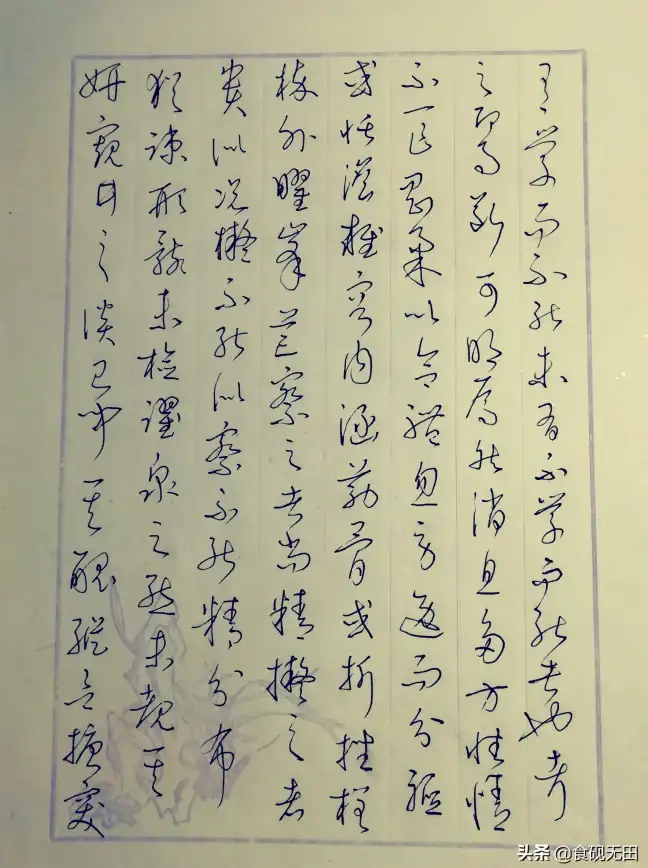 有学而不能未有不学而能者也考
之即事断可明焉然消息多方性情
不一乍刚柔以合体忽劳逸而分驱
或恬澹雍容内涵筋骨或折挫槎
枿外曜峰芒察之者尚精拟之者
贵似况拟不能似察不能精分布
犹疏形骸未检跃泉之态未睹其
妍窥井之谈已闻其丑纵欲搪突
头条 @食砚无田